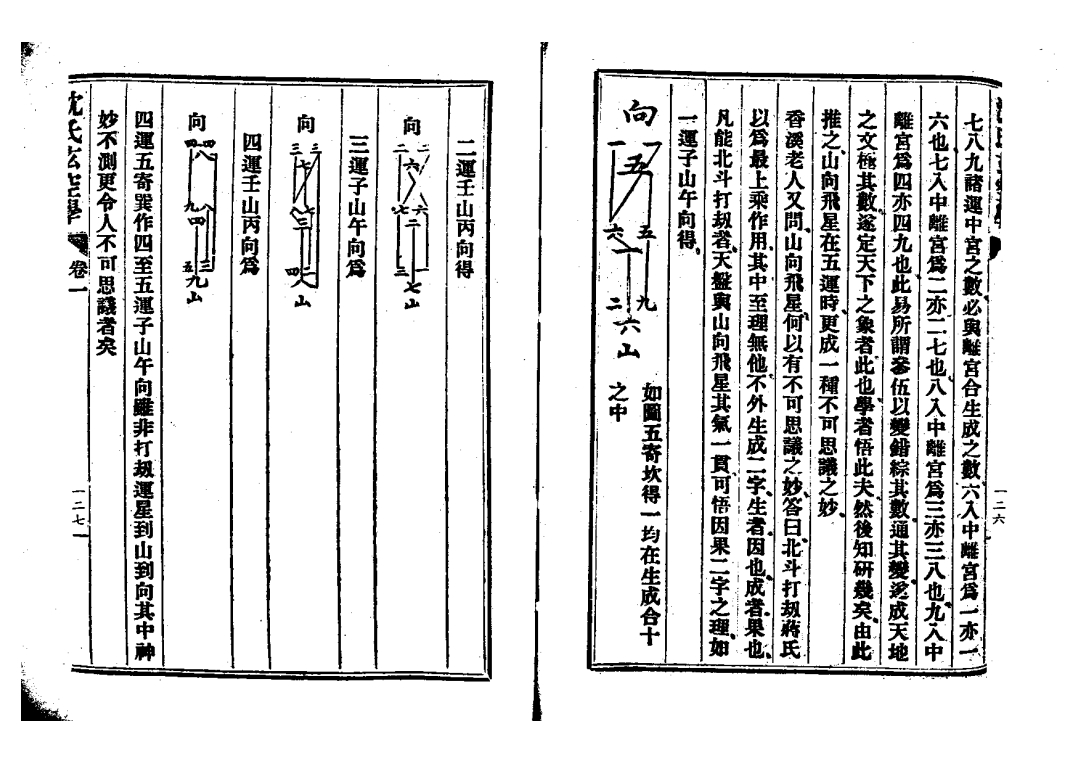 七八九諸運中宮之數必與離宮合生成之數六入中離宮爲一亦一
六也七入中離宮爲二亦二七也八入中離宮爲三亦三八也九入中
離宮爲四亦四九也此易所謂參伍以變錯綜其數通其變遂成天地
之文極其數遂定天下之象者此也學者悟此夫然後知研幾矣由此
推之山向飛星在五運時更成一種不可思議之妙
香溪老人又問山向飛星何以有不可思議之妙答曰北斗打刼蔣氏
以爲最上乘作用其中至理無他不外生成二字生者因也成者果也
凡能北斗打刼者天盤與山向飛星其氣一貫可悟因果二字之理如
一運子山午向得
向
一 五
六 五
二 六 九
山
如圖五寄坎得一均在生成合十
之中
一二六
二運壬山丙向得
向
二 二
六
七 六
二
三 七 一
山
三運子山午向爲
向
三 三
七
八 三
四 八 二
山
四運壬山丙向爲
向
四 四
八
九 四
五 九 三
山
四運五寄巽作四至五運子山午向雖非打刼運星到山到向其中神
妙不測更令人不可思議者矣
沈氏玄空學
卷一
一二七